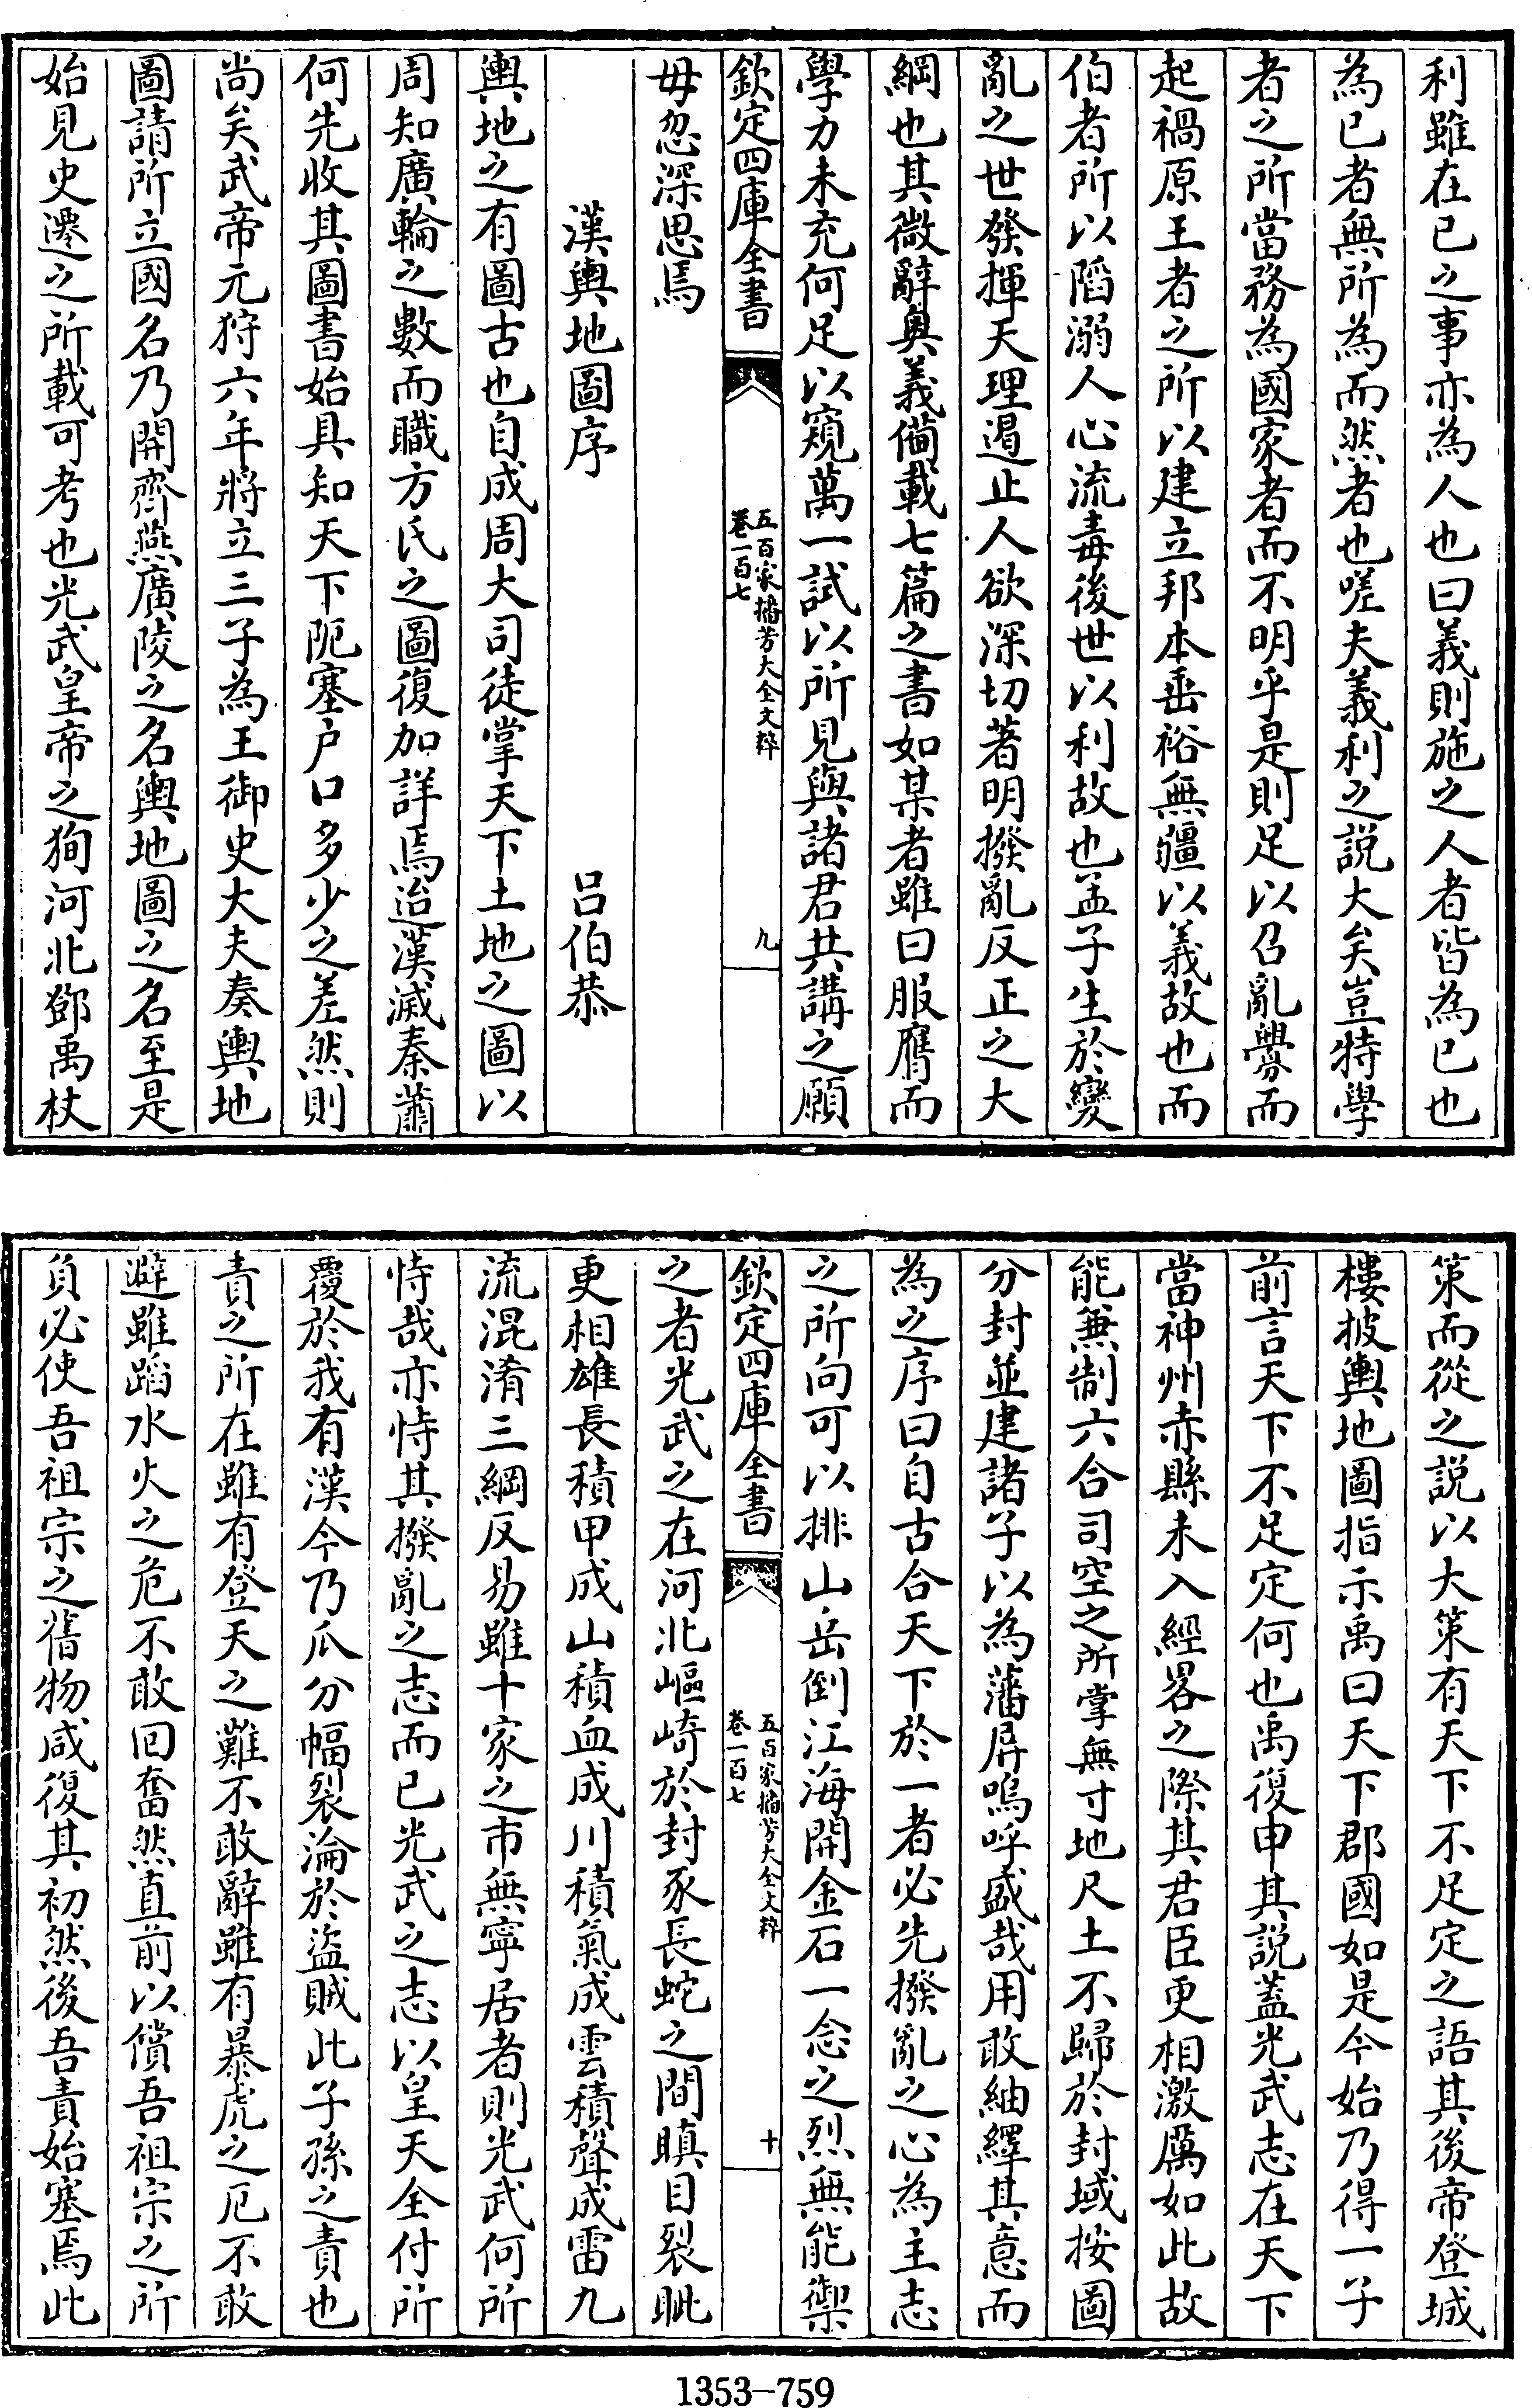 利雖在已之事亦為人也曰義則施之人者皆為已也
為已者無所為而然者也嗟夫義利之説大矣豈特學
者之所當務為國家者而不明乎是則足以召亂釁而
起禍原王者之所以建立邦本垂裕無疆以義故也而
伯者所以䧟溺人心流毒後世以利故也孟子生於變
亂之世發揮天理遏止人欲深切著明撥亂反正之大
綱也其微辭奥義備載七篇之書如某者雖曰服膺而
學力未充何足以窺萬一試以所見與諸君共講之願
欽定四庫全書
五百家播芳大全文粹
卷一百七
九
毋忽深思焉
漢輿地圖序
吕伯恭
輿地之有圖古也自成周大司徒掌天下土地之圖以
周知廣輪之數而職方氏之圖復加詳焉迨漢滅秦蕭
何先收其圖書始具知天下阨塞户口多少之差然則
尚矣武帝元狩六年將立三子為王御史大夫奏輿地
圖請所立國名乃開齊燕廣陵之名輿地圖之名至是
始見史遷之所載可考也光武皇帝之狥河北鄧禹杖
策而從之説以大策有天下不足定之語其後帝登城
樓披輿地圖指示禹曰天下郡國如是今始乃得一子
前言天下不足定何也禹復申其説蓋光武志在天下
當神州赤縣未入經畧之際其君臣更相激厲如此故
能兼制六合司空之所掌無寸地尺土不歸於封域按圖
分封並建諸子以為藩屏嗚呼盛哉用敢紬繹其意而
為之序曰自古合天下於一者必先撥亂之心為主志
之所向可以排山岳倒江海開金石一念之烈無能禦
欽定四庫全書
五百家播芳大全文粹
卷一百七
十
之者光武之在河北嶇崎於封豕長蛇之間瞋目裂眦
更相雄長積甲成山積血成川積氣成雲積聲成雷九
流混淆三綱反易雖十家之市無寧居者則光武何所
恃哉亦恃其撥亂之志而已光武之志以皇天全付所
覆於我有漢今乃瓜分幅裂淪於盜賊此子孫之責也
責之所在雖有登天之難不敢辭雖有暴虎之厄不敢
避雖蹈水火之危不敢回奮然直前以償吾祖宗之所
負必使吾祖宗之舊物咸復其初然後吾責始塞焉此
1353-759